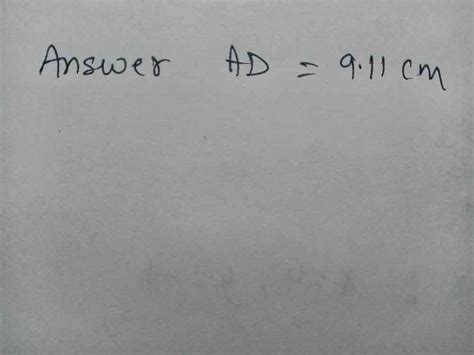 Answer AD = 9.11 cm